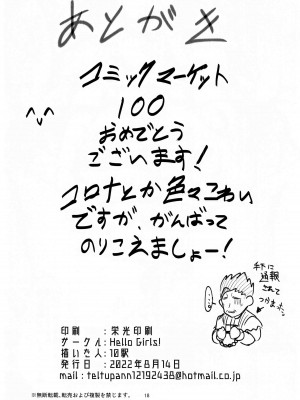 あとがき
コミックマーケット
100
おめでとう
ございます!
コロナとか色々こわい
ですが、がんばって
のりこえましょー!
^v^
手下に
通報
されて
つかまった。
印刷 : 栄光印刷
サークル : Hello Girls!
描いた人 : 10駅
発行日 : 2022年8月14日
mail : teltupann12192438@hotmail.co.jp
※無断転載、転売および複製を禁じます。
18